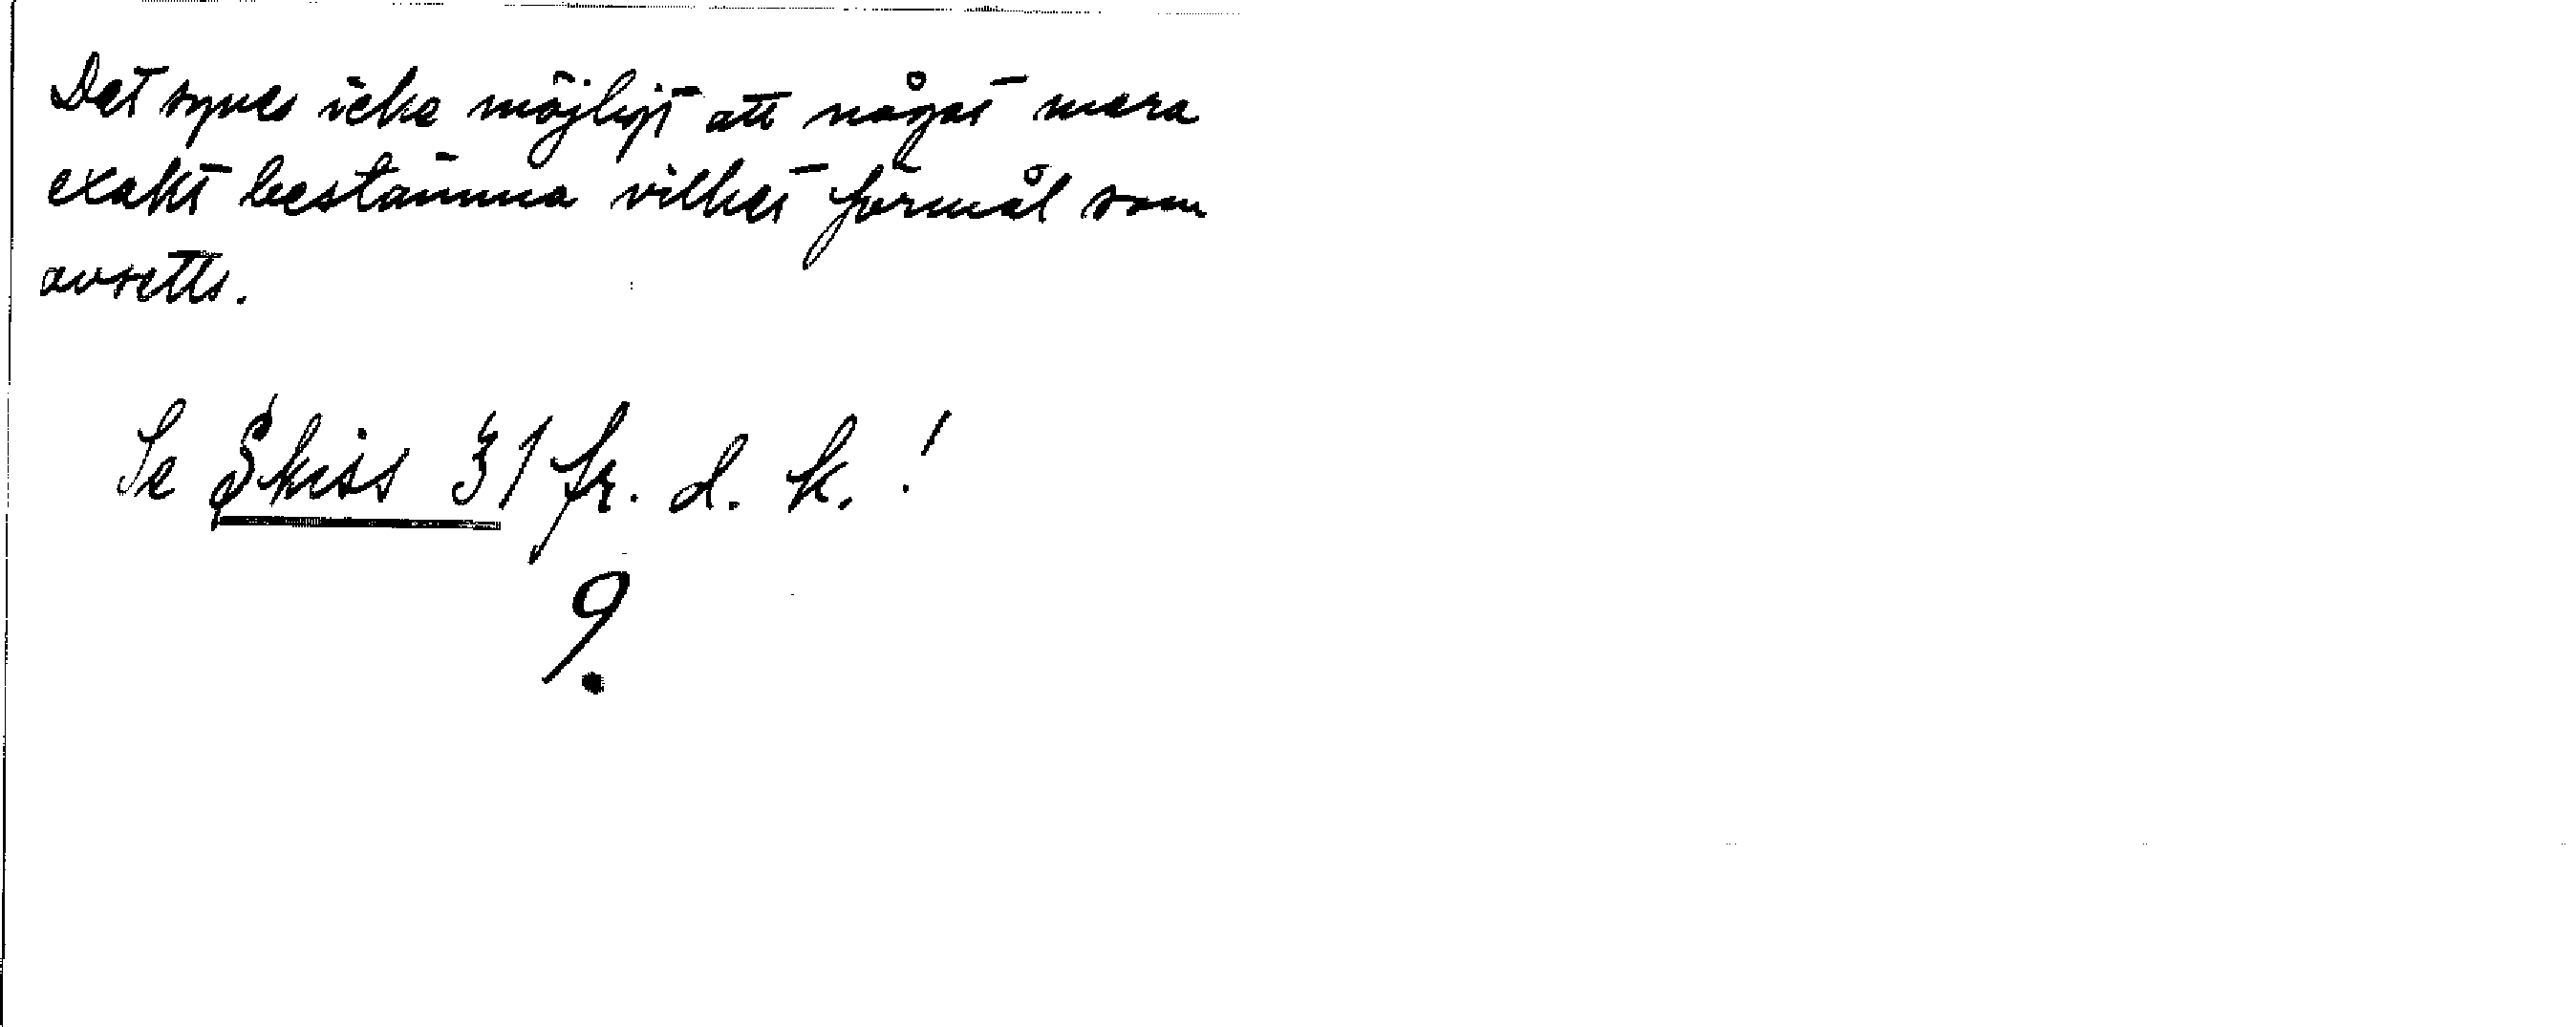 Det synes icke möjligt att något mera
exakt bestämma vilket förmål som
avsetts.
Se Skiss 31 fr. d. k.!
9.